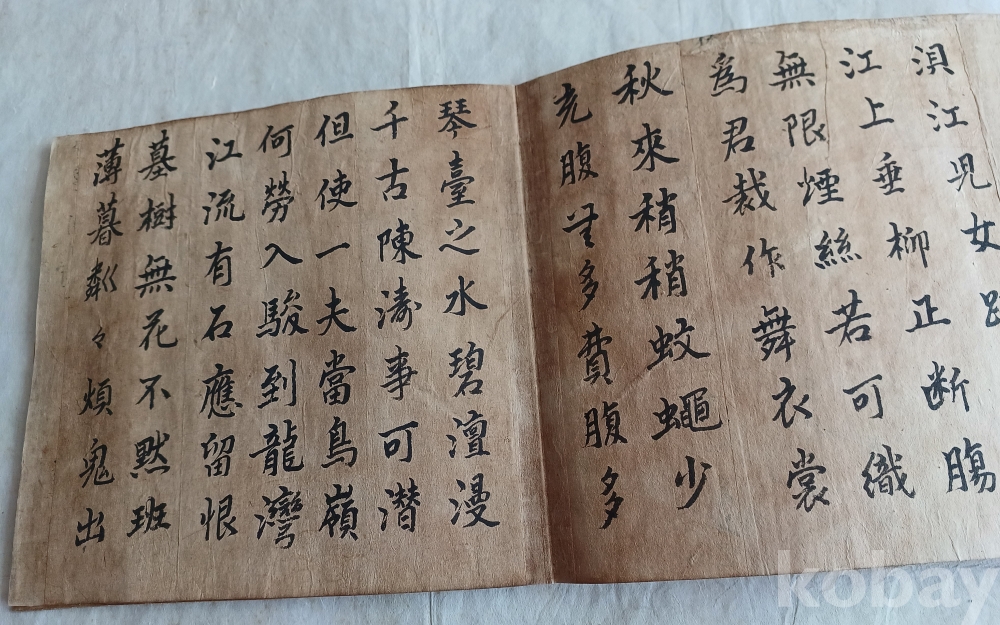 浿江児女
江上垂柳正断腸
無限煙絲若可織
爲君裁作舞衣裳
秋來稍稍蚊蠅少
充腹多費腹多
琴臺之水碧澶漫
千古陳濤事可潜
但使一夫當鳥嶺
何勞入駿到龍灣
江流有石應留恨
墓樹無花不黙班
薄暮粼々煩鬼出
kobay